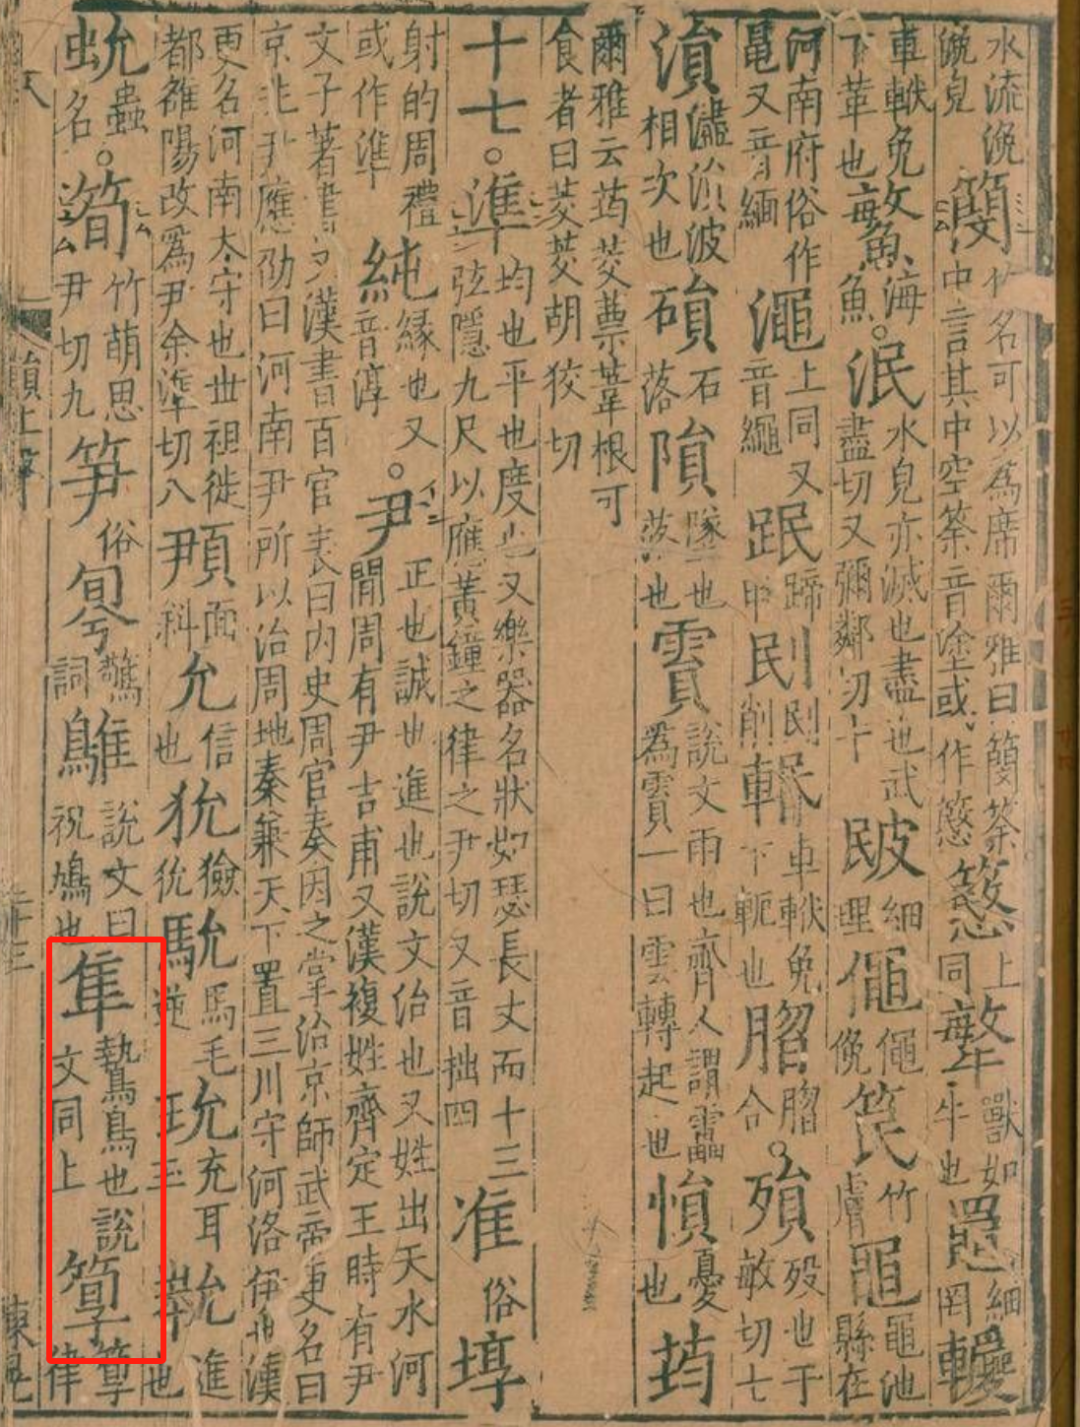 水流浼浼皃簢竹名可以爲席爾雅曰簢筡中言其中空筡音塗或作慜上同獸如牛也細罔
車軼兔下革也鰵海魚○泯水皃亦滅也盡也武盡切又彌鄰切十細理僶僶俛笢竹膚黽黽池縣在
河南府俗作黽又音緬澠上同又音繩蹄甲刡刡削車軼兔下軛也合○殞歿也于敏切七
溳㵢溳波相次也磒石落隕墜也落也霣說文雨也齊人謂靁爲霣一曰雲轉起也愪憂也荺
爾雅云荺茭蔈葦根可食者曰茭茭胡狡切
十七○準均也平也度也又樂器名狀如瑟長丈而十三弦隱九尺以應黃鐘之律之尹切又音拙四准俗埻
射的周禮或作準純緣也又音淳○尹正也誠也進也說文治也又姓出天水河間周有尹吉甫又漢複姓齊定王時有尹
文子著書又漢書百官表曰內史周官秦因之掌治京師武帝更名曰京兆尹應劭曰河南尹所以治周地秦兼天下置三川守河洛伊也漢
更名河南太守也世祖徙都雒陽改爲尹余準切八面科允信也狁獫狁馻馬毛逆玧充耳玉進也
蟲名○筍竹萌思尹切九笋俗驚詞鵻說文曰祝鳩也隼鷙鳥也說文同上簨律